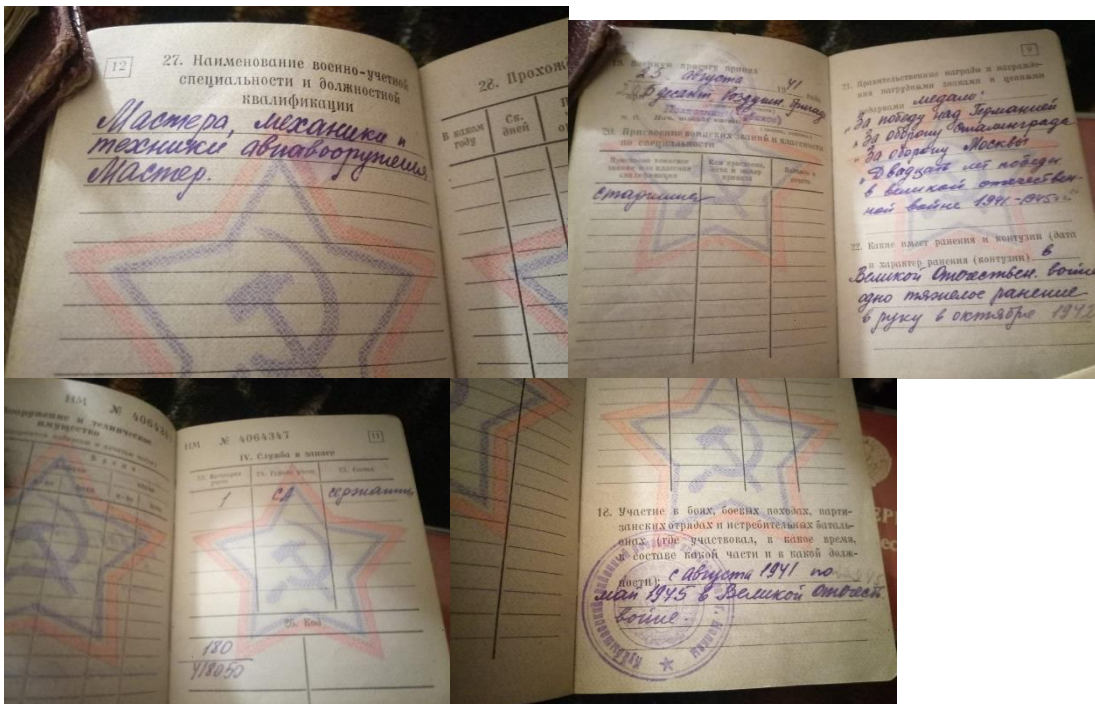 12
27. Наименование военно-учетной
специальности и должностной
квалификации
Мастера, механики и
техники авиавооружения
Мастер.
28. Прохож
В каком
году
Св.
дней
19. Военную присягу принял
25. августа 1941
десант. воздушн. бригад
20. Присвоение воинских званий и классности
по специальности
старшина
9
21. Правительственные награды и награжде-
ния нагрудными знаками и ценными
подарками медали:
"За победу над Германией
"За оборону Сталинграда
"За оборону Москвы
"Двадцать лет победы
в великой отечествен-
ной войне 1941-1945гг"
22. Какие имеет ранения и контузии (дата
и характер ранения (контузии) в
Великой Отечествен. войне
одно тяжелое ранение
в руку в октябре 1942
НМ № 4064347
вооружение и техническое
имущество
НМ № 4064347
11
IV. Служба в запасе
1
СА
сержанты
26. Код
180
418050
18. Участие в боях, боевых походах, парти-
занских отрядах и истребительных баталь-
онах (где участвовал, в какое время,
в составе какой части и в какой долж-
ности): с августа 1941 по
май 1945 в Великой отечест.
войне.